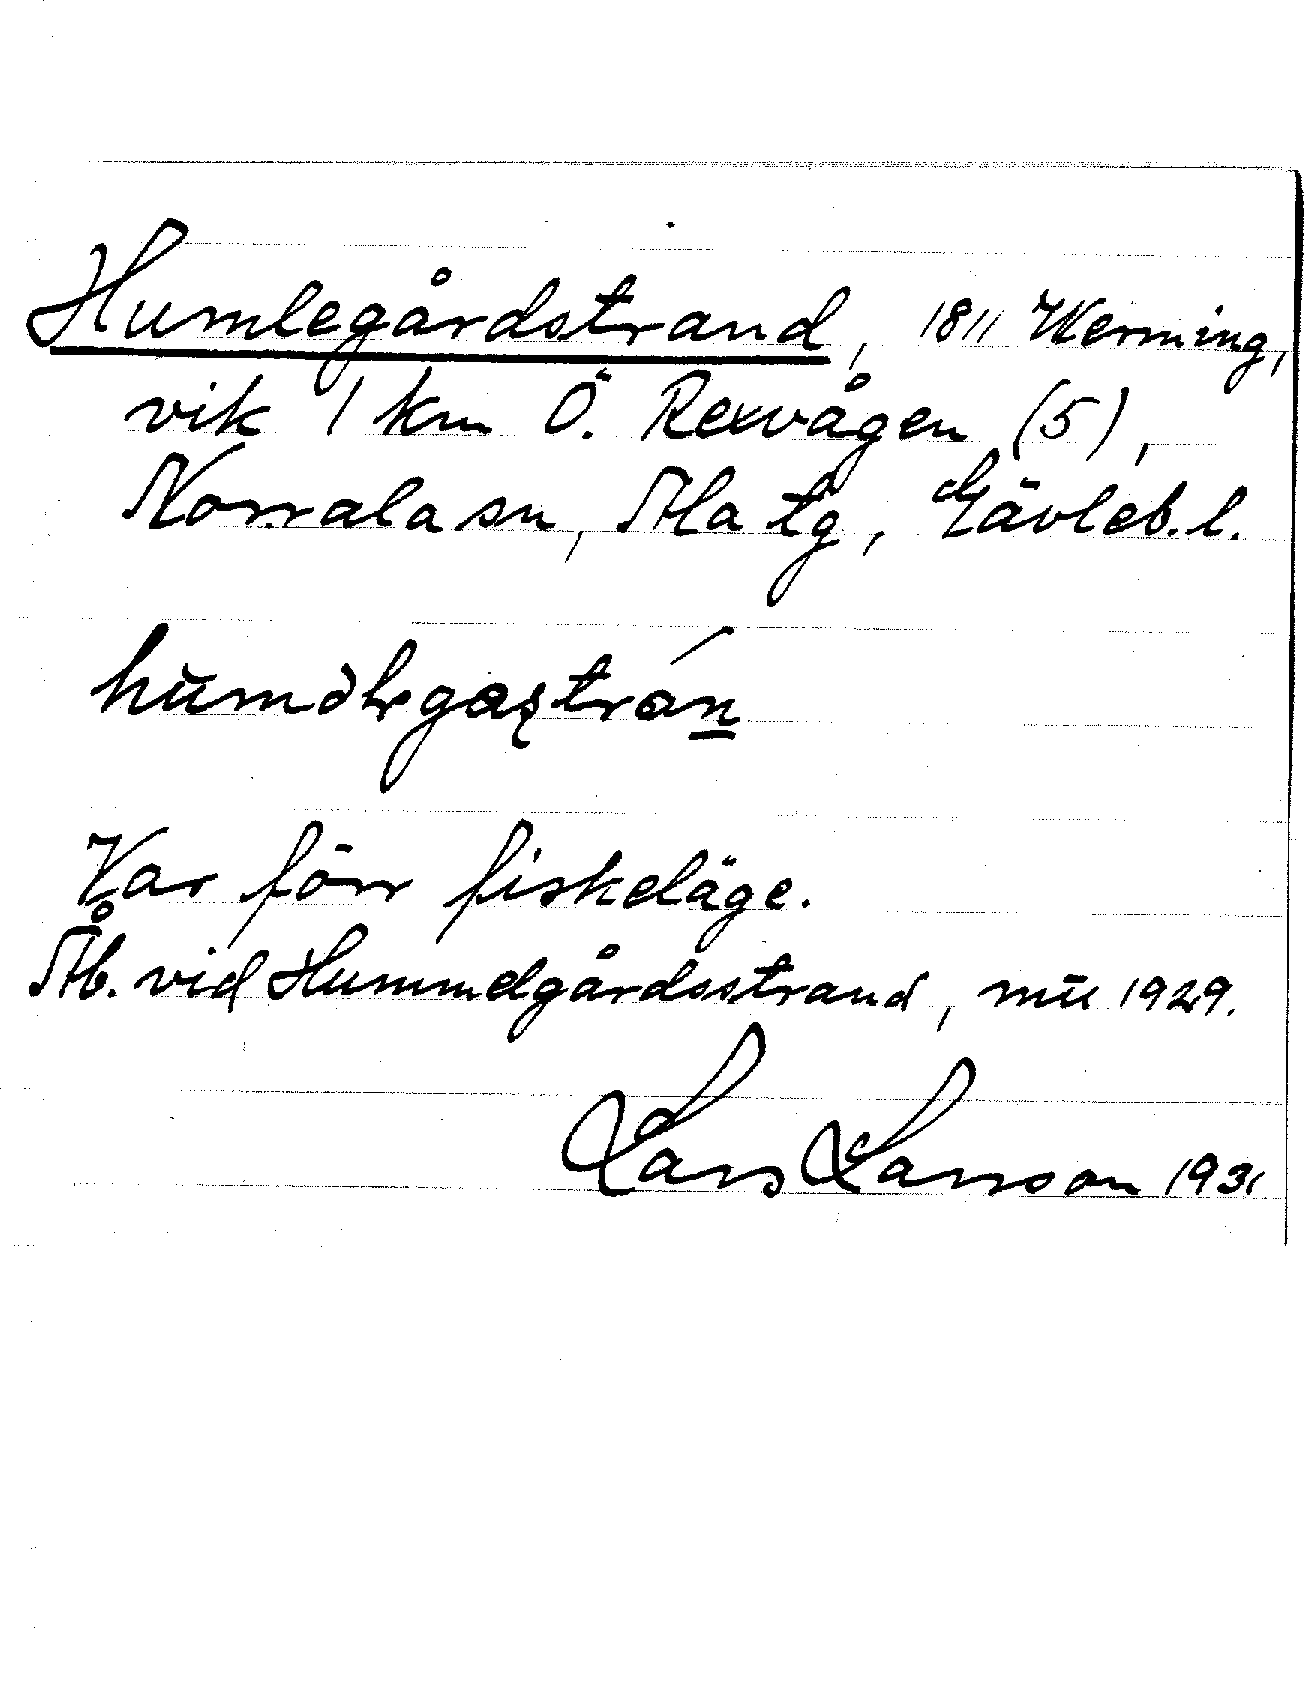 Humlegårdstrand, 1811 Werming,
vik 1 km Ö. Rexvågen (5),
Norrala sn, Ala tg, Gävleb. l.
Var förr fiskeläge.
Åb. vid Hummelgårdsstrand, mū 1929.
Lars Larsson 1931